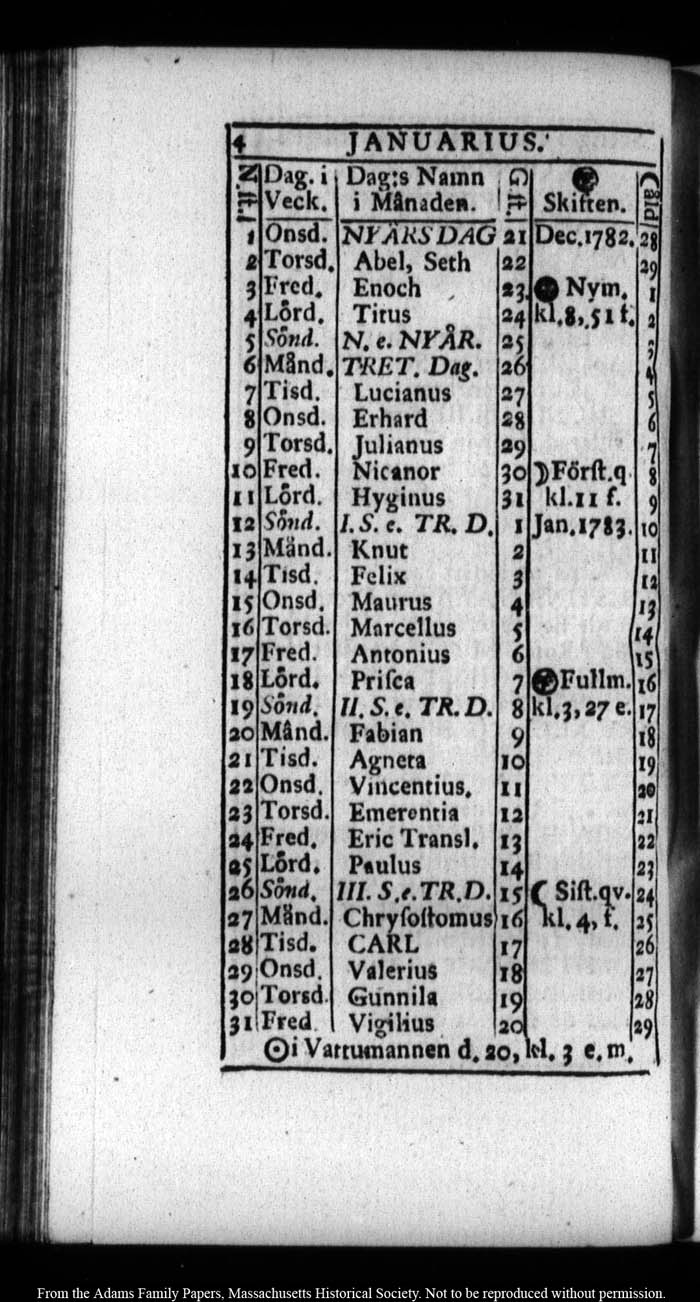 4 JANUARIUS.
N. ſt. Dag. i Veck. Dag:s Namn i Månaden. G. ſt. Skiften. Cåld
1 Onsd. NYÅRSDAG 21 Dec.1782. 28
2 Torsd. Abel, Seth 22 29
3 Fred. Enoch 23. Nym. 1
4 Lörd. Titus 24 kl.8, 51 f. 2
5 Sönd. N. e. NYÅR. 25 3
6 Månd. TRET. Dag. 26 4
7 Tisd. Lucianus 27 5
8 Onsd. Erhard 28 6
9 Torsd. Julianus 29 7
10 Fred. Nicanor 30 ☽Förſt.q 8
11 Lörd. Hyginus 31 kl.11 f. 9
12 Sönd. I. S. e. TR. D. 1 Jan.1783. 10
13 Månd. Knut 2 11
14 Tisd. Felix 3 12
15 Onsd. Maurus 4 13
16 Torsd. Marcellus 5 14
17 Fred. Antonius 6 15
18 Lörd. Priſca 7 Fullm. 16
19 Sönd. II. S. e. TR. D. 8 kl.3, 27 e. 17
20 Månd. Fabian 9 18
21 Tisd. Agneta 10 19
22 Onsd. Vincentius. 11 20
23 Torsd. Emerentia 12 21
24 Fred. Eric Transl. 13 22
25 Lörd. Paulus 14 23
26 Sönd. III. S.e.TR.D. 15 ☾ Siſt.qv. 24
27 Månd. Chryſoſtomus 16 kl. 4, f. 25
28 Tisd. CARL 17 26
29 Onsd. Valerius 18 27
30 Torsd. Gunnila 19 28
31 Fred. Vigilius 20 29
☉i Vattumannen d. 20, kl. 3 e. m.
From the Adams Family Papers, Massachusetts Historical Society. Not to be reproduced without permission.